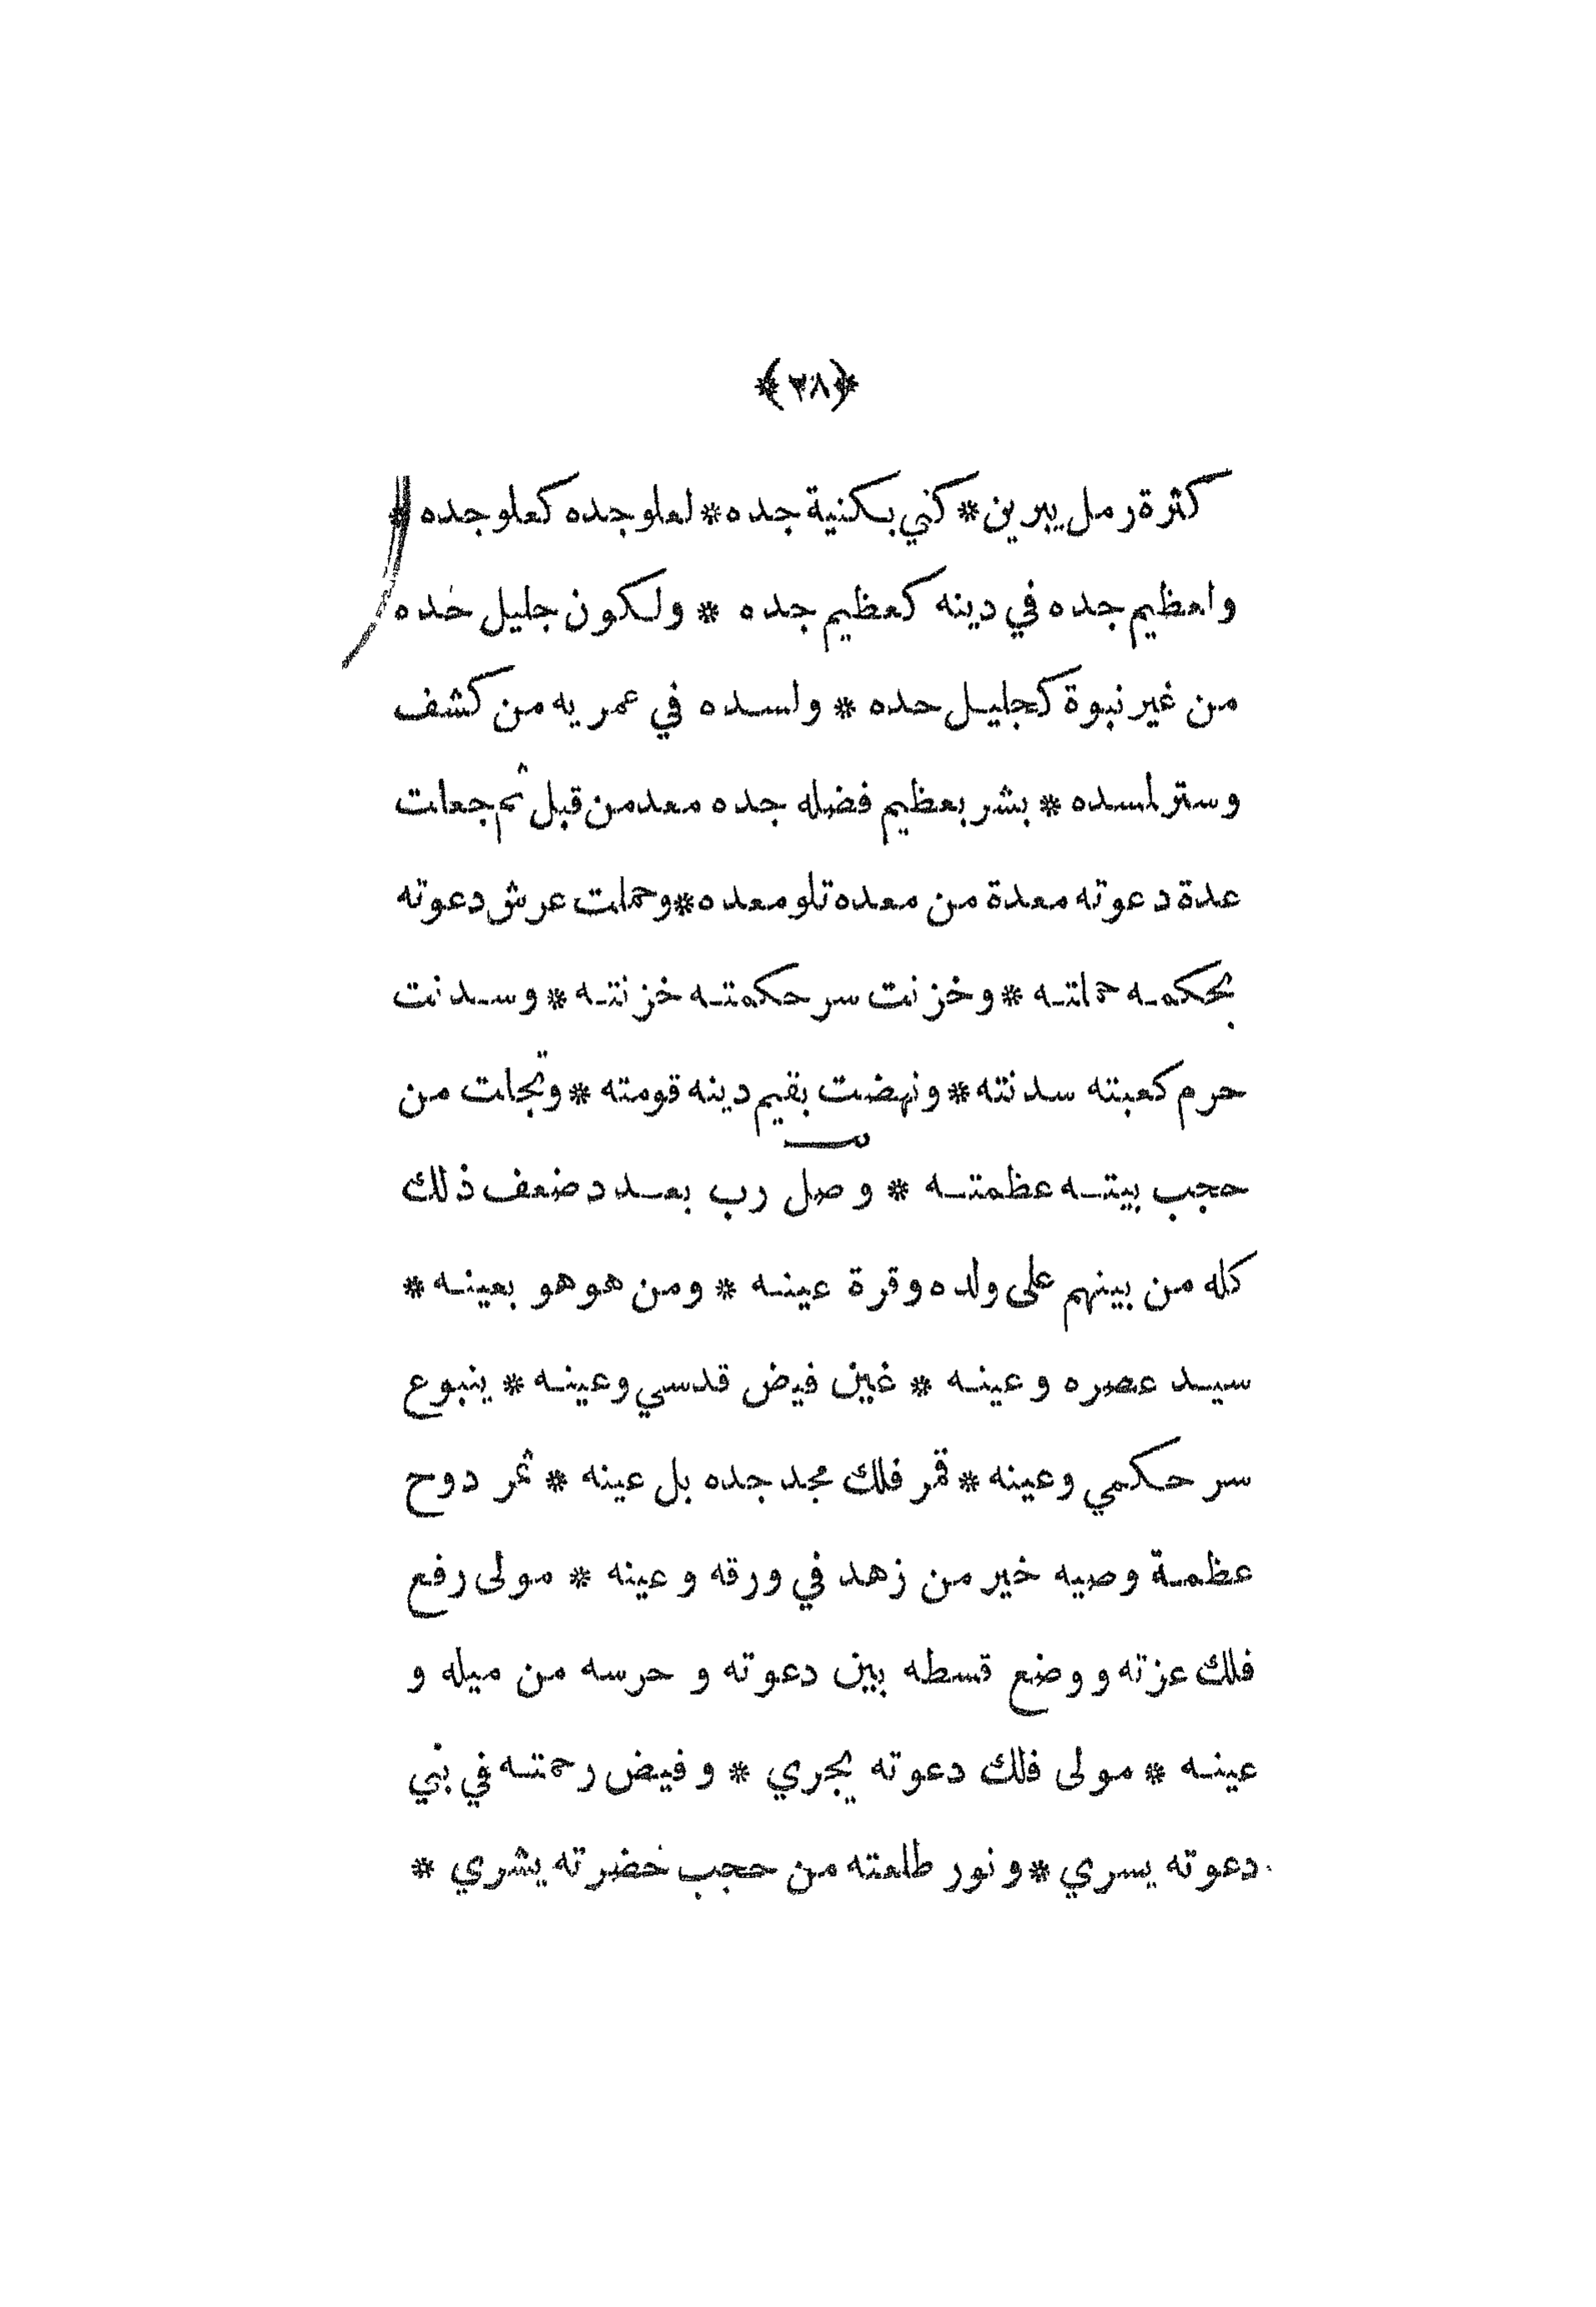 ﴿٢٨﴾
كثرة رمل يبرين * كني بكنية جده * لعلو جده كعلو جده *
ولعظيم جده في دينه كعظيم جده * ولكون جليل خده
من غير نبوة كجليل حده * ولسده في عمر يه من كشف
وستر لسده * بشر بعظيم فضله جده معد من قبل ثم جعلت
عدة دعوته معدة من معده تلو معده * وحملت عرش دعوته
بحكمه حملته * وخزنت سر حكمته خزنته * وسدنت
حرم كعبته سدنته * ونهضت بقيم دينه قومته * وتجلت من
حجب بيته عظمته * وصل رب بعدد ضعف ذلك
كله من بينهم على ولده وقرة عينه * ومن هو هو بعينه *
سيد عصره وعينه * غين فيض قدسي وعينه * ينبوع
سر حكمي وعينه * قمر فلك مجد جده بل عينه * ثمر دوح
عظمة وصيه خير من زهد في ورقه وعينه * مولى رفع
فلك عزته و وضع قسطه بين دعوته و حرسه من ميله و
عينه * مولى فلك دعوته يجري * و فيض رحمته في بني
دعوته يسري * و نور طلعته من حجب خضرته يشري *